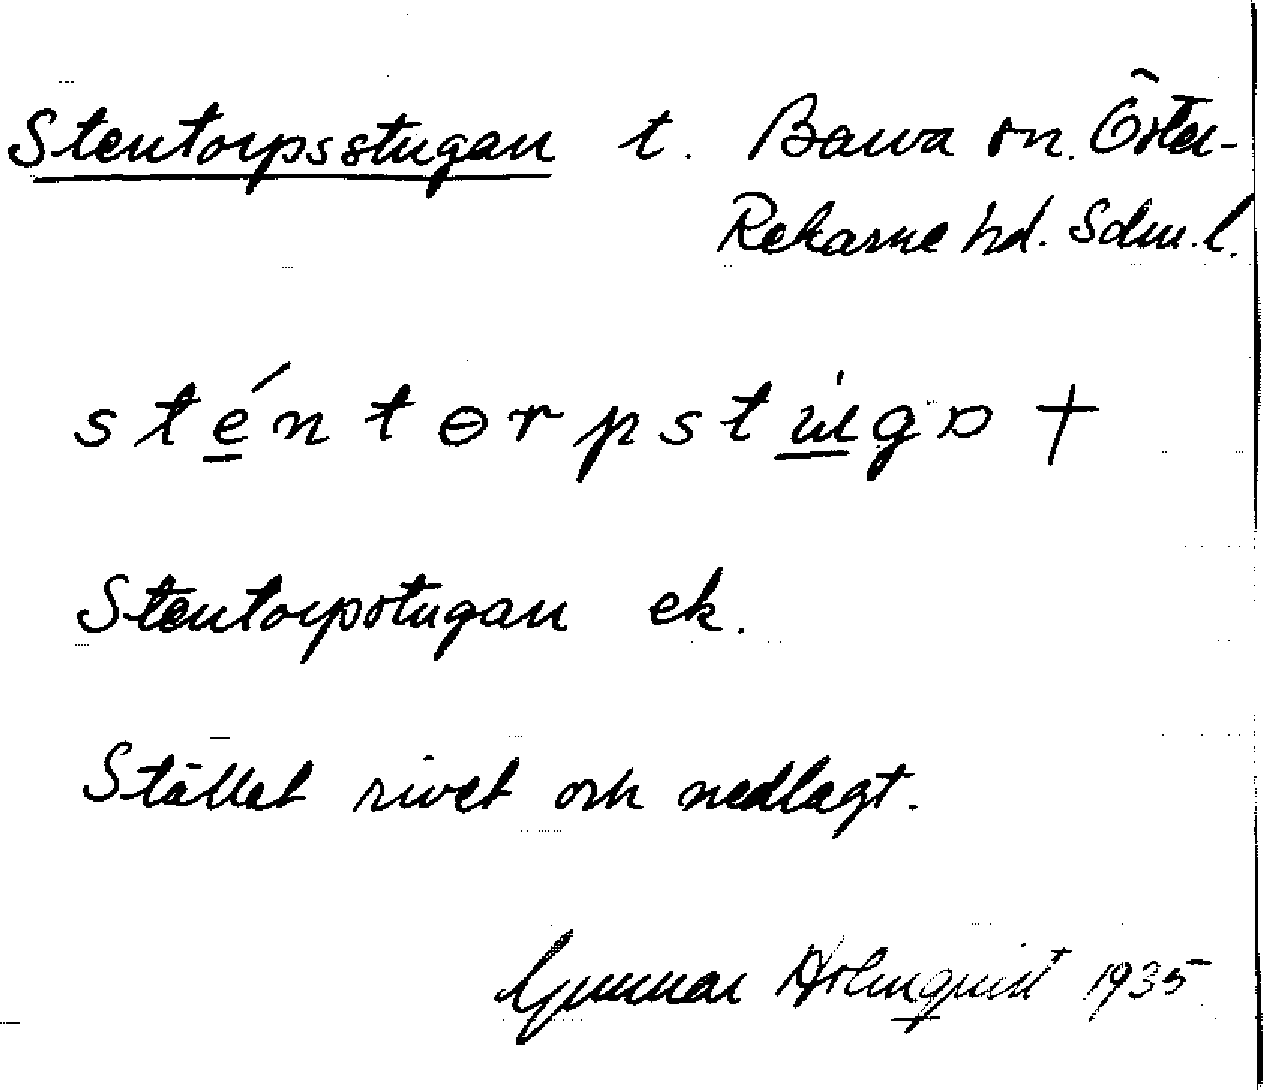 Stentorpsstugan t. Barva sn. Öster-
Rekarne hd. Södm. l.
sténtɵrpstu̇gɒ †
Stentorpstugan ek.
Stället rivet och nedlagt.
Gunnar Holmquist 1935